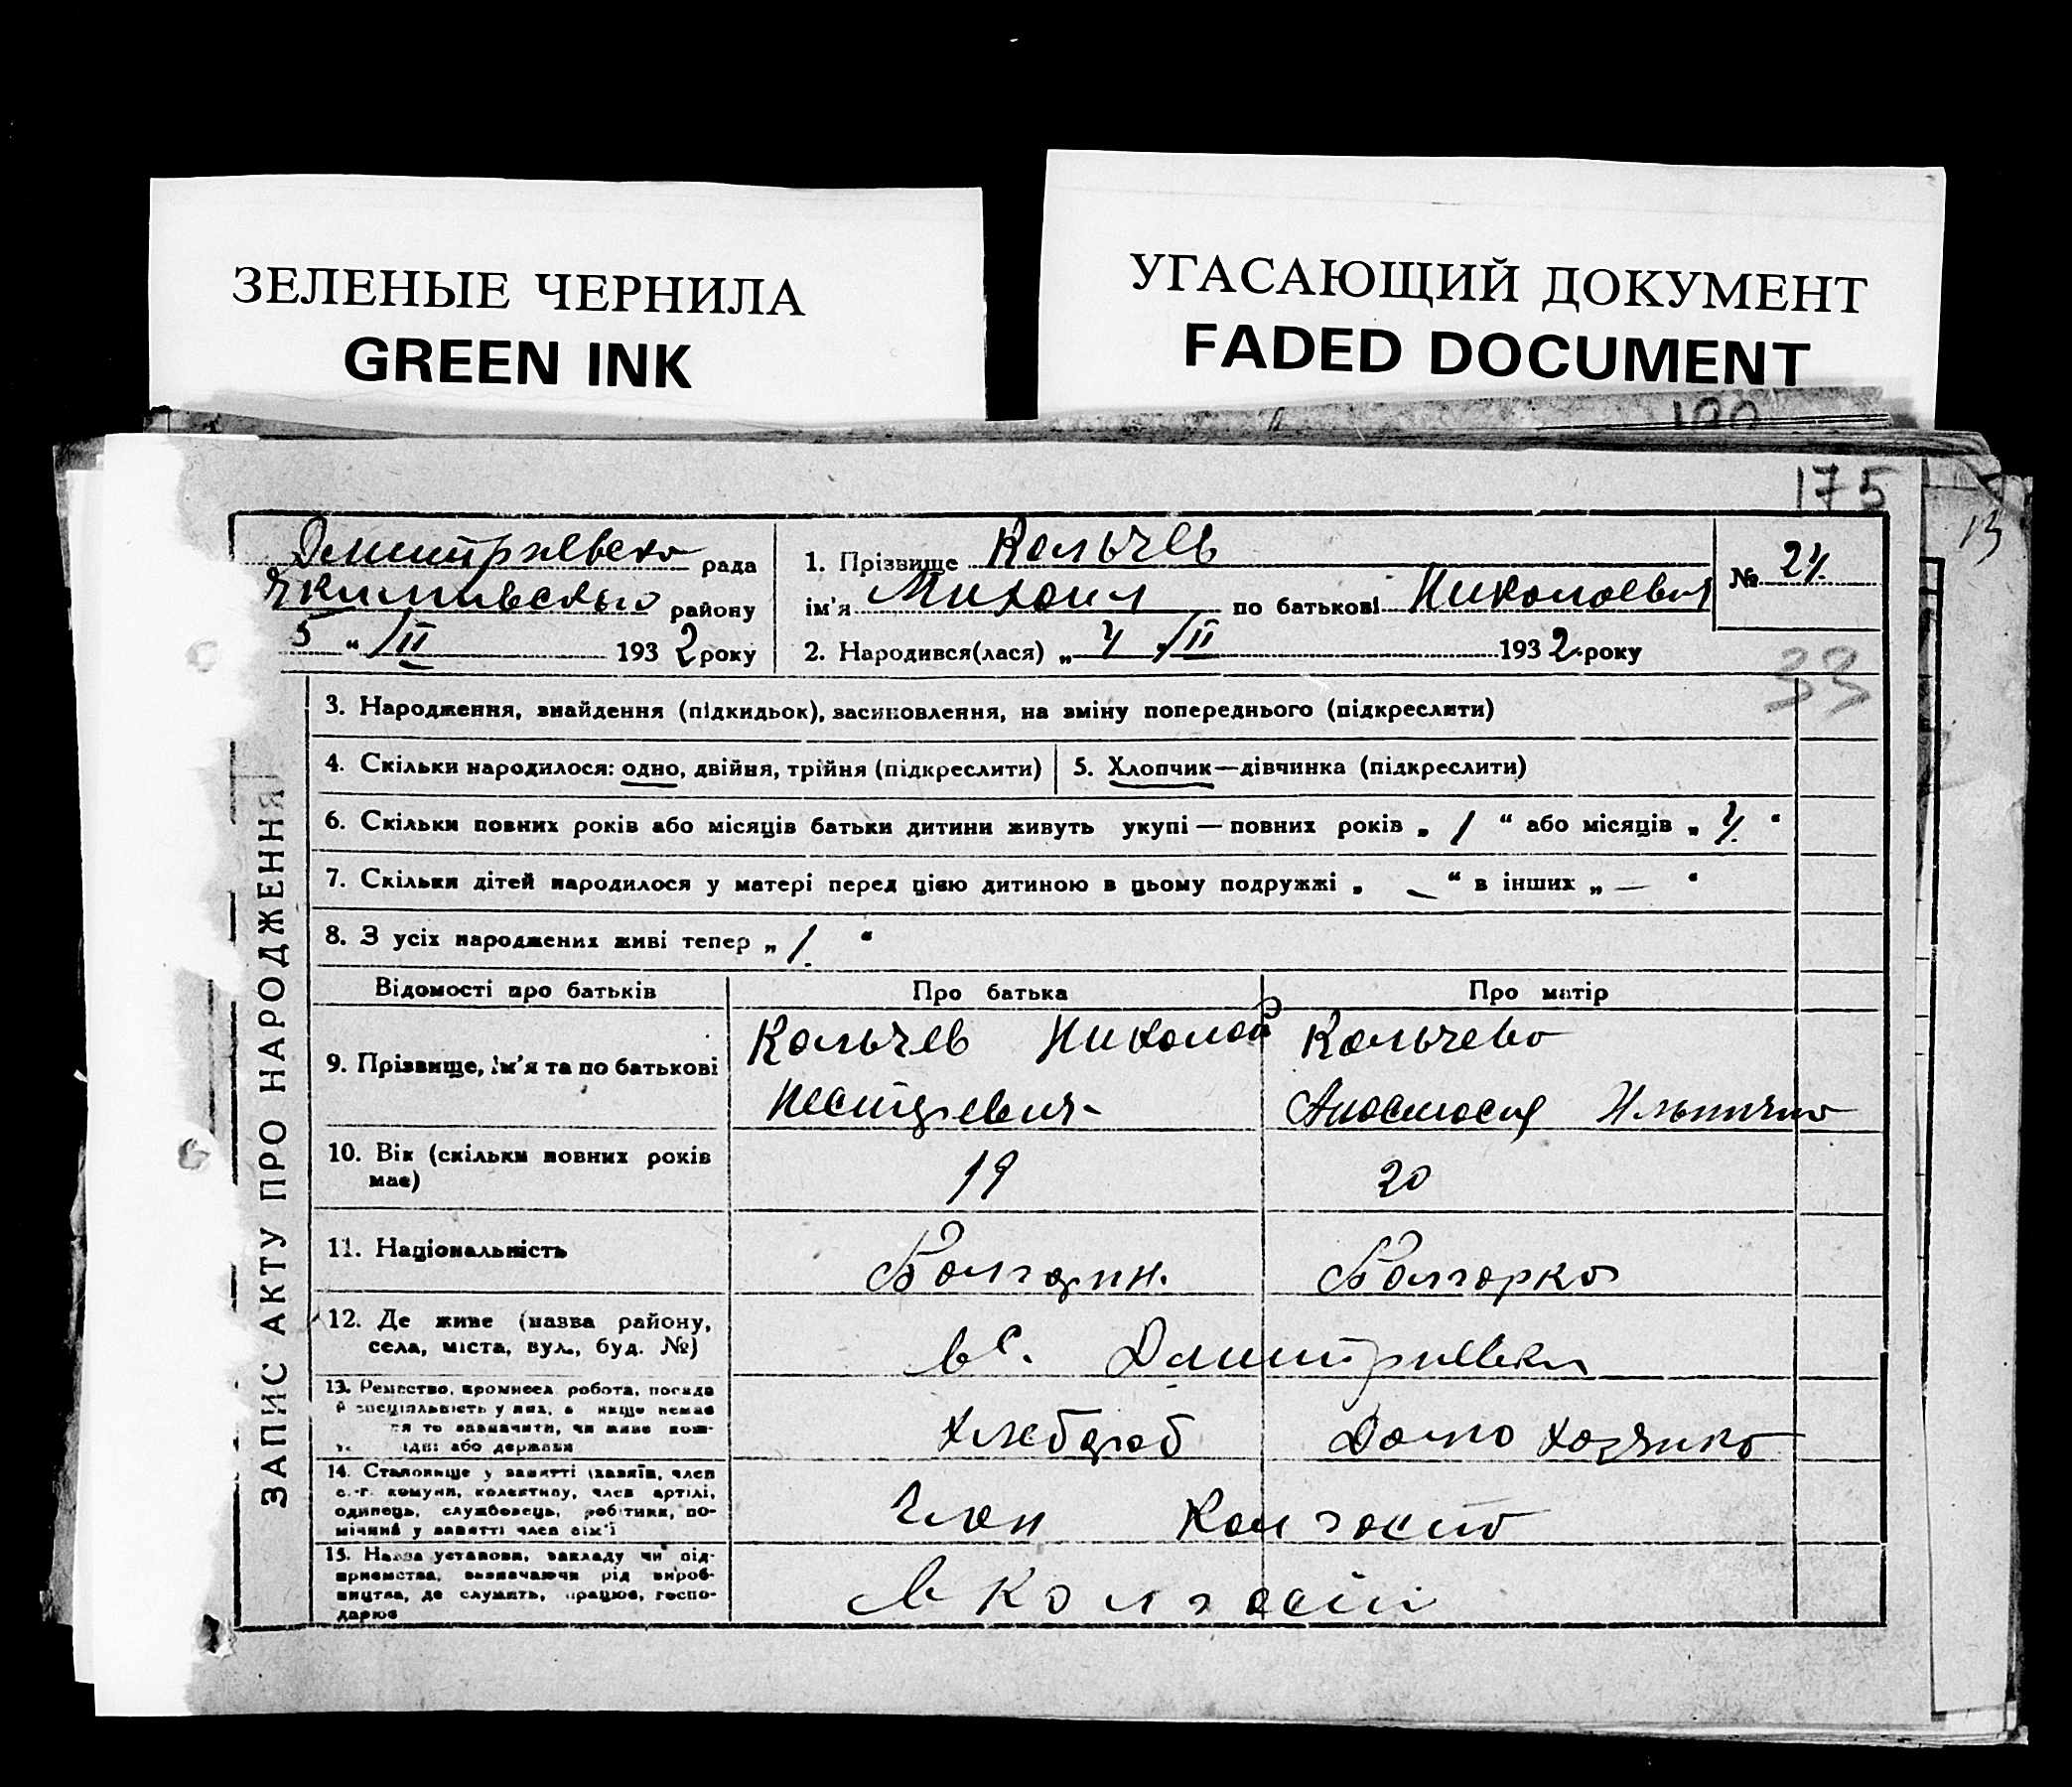 ЗЕЛЕНЫЕ ЧЕРНИЛА
GREEN INK
УГАСАЮЩИЙ ДОКУМЕНТ
FADED DOCUMENT
190
175
13
Дмитриевска рада
району
5 " / II 1932 року
1. Прізвище Кальчев
ім'я Михаил по батькові Николаевич
2. Народився(лася) „ 4 / II 1932 року
№ 24
33
ЗАПИС АКТУ ПРО НАРОДЖЕННЯ
3. Народження, знайдення (підкидьок), засиновлення, на зміну попереднього (підкреслити)
4. Скільки народилося: одно, двійня, трійня (підкреслити)
5. Хлопчик—дівчинка (підкреслити)
6. Скільки повних років або місяців батьки дитини живуть укупі — повних років „ 1 “ або місяців „ 4 “
7. Скільки дітей народилося у матері перед цією дитиною в цьому подружжі „ — “ в інших „ — “
8. З усіх народжених живі тепер „ 1 “
Відомості про батьків Про батька Про матір
9. Прізвище, ім'я та по батькові
Кальчев Николай
Кальчева
Анастасия Ильинична
10. Вік (скільки повних років має) 19 20
11. Національність Болгарин. Болгарка
12. Де живе (назва району, села, міста, вул., буд. №)
в с. Дмитриевки
13. Ремество, промисел, робота, посада
й спеціяльність у них, а якщо немає
то зазначити, чи живе кош-
або держави
Хлебороб Домохозяйка
14. Становище у занятті (хазяїн, член
с.-г. комуни, колективу, член артілі,
одинець, службовець, робітник, по-
мічний у занятті член сім'ї
Член Колгоспо
15. Назва установи, закладу чи під-
приємства, визначаючи рід вироб-
ництва, де служить, працює, госпо-
дарює
в колгоспі